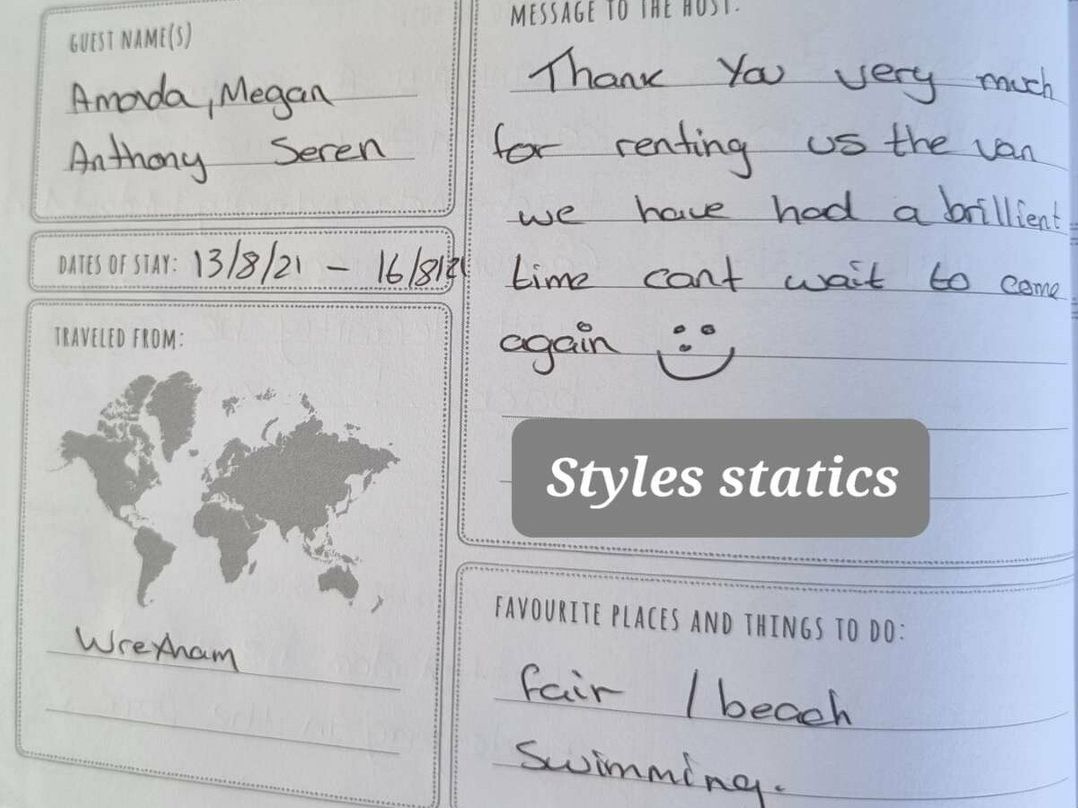 GUEST NAME(S)
Amanda, Megan
Anthony Seren
DATES OF STAY: 13/8/21 - 16/8/21
TRAVELED FROM:
Wrexham
MESSAGE TO THE HOST:
Thank You very much
for renting us the van
we have had a brillient
time cant wait to come
again
Styles statics
FAVOURITE PLACES AND THINGS TO DO:
fair / beach
Swimming.